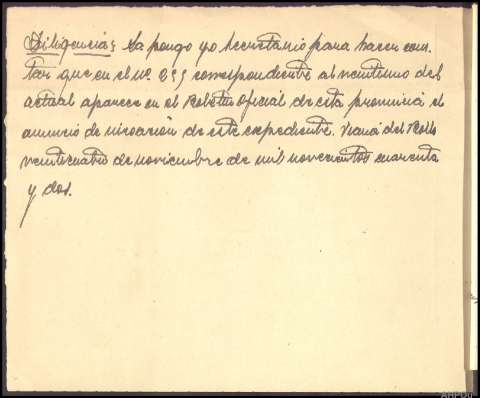 Diligencia; La pongo yo Secretario para hacer cons-
tar que en el nº. correspondiente al veintiuno del
actual aparece en el Boletin oficial de esta provincia el
anuncio de incoación de este expediente. Viana del Bollo
veinticuatro de noviembre de mil novecientos cuarenta
y dos.